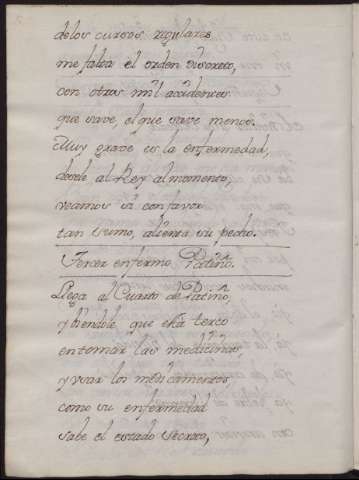 de los cursos regulares
me falta el orden discreto,
con otros mil accidentes
que save, el que save menos.
Muy grave es la enfermedad,
dele al Rey al momento,
veamos si con favor
tan sumo, alienta su pecho.
Tercer enfermo Patiño.
Llega al Cuarto de Patiño,
y biendole, que está terco
en tomar las medicinas,
y usar los medicamentos,
como su enfermedad
sabe el estado secreto,